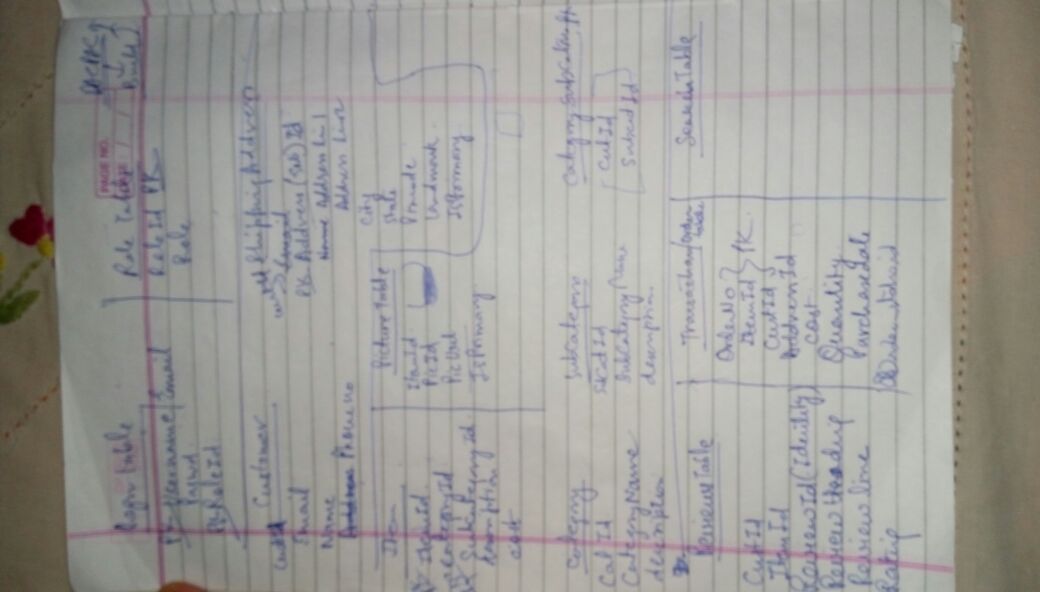 Login table
PK Username/Email
Passwd
RoleId
Role Table
RoleId PK
Role
PAGE NO.
DATE
Customer
CustId
Email
Name
Phone no
Shipping Address
EmailId
PK Address (Ship) Id
Name Address Line 1
Address Line 2
City
State
Pincode
Landmark
IsPrimary
Item
PK ItemId
CategoryId
SubCategoryId
description
cost
Picture Table
ItemId
PicId
PicUrl
IsPrimary
Category
Cat Id
Category Name
description
Subcategory
SubcatId
Subcategory Name
description
Category Subcategory
CatId
SubcatId
Review Table
CustId
ItemId
ReviewId (Identity)
Review Heading
Review line
Rating
Transaction/Order table
OrderNo
ItemId } PK
CustId
AddressId
cost
Quantity
Purchasedate
Search Table